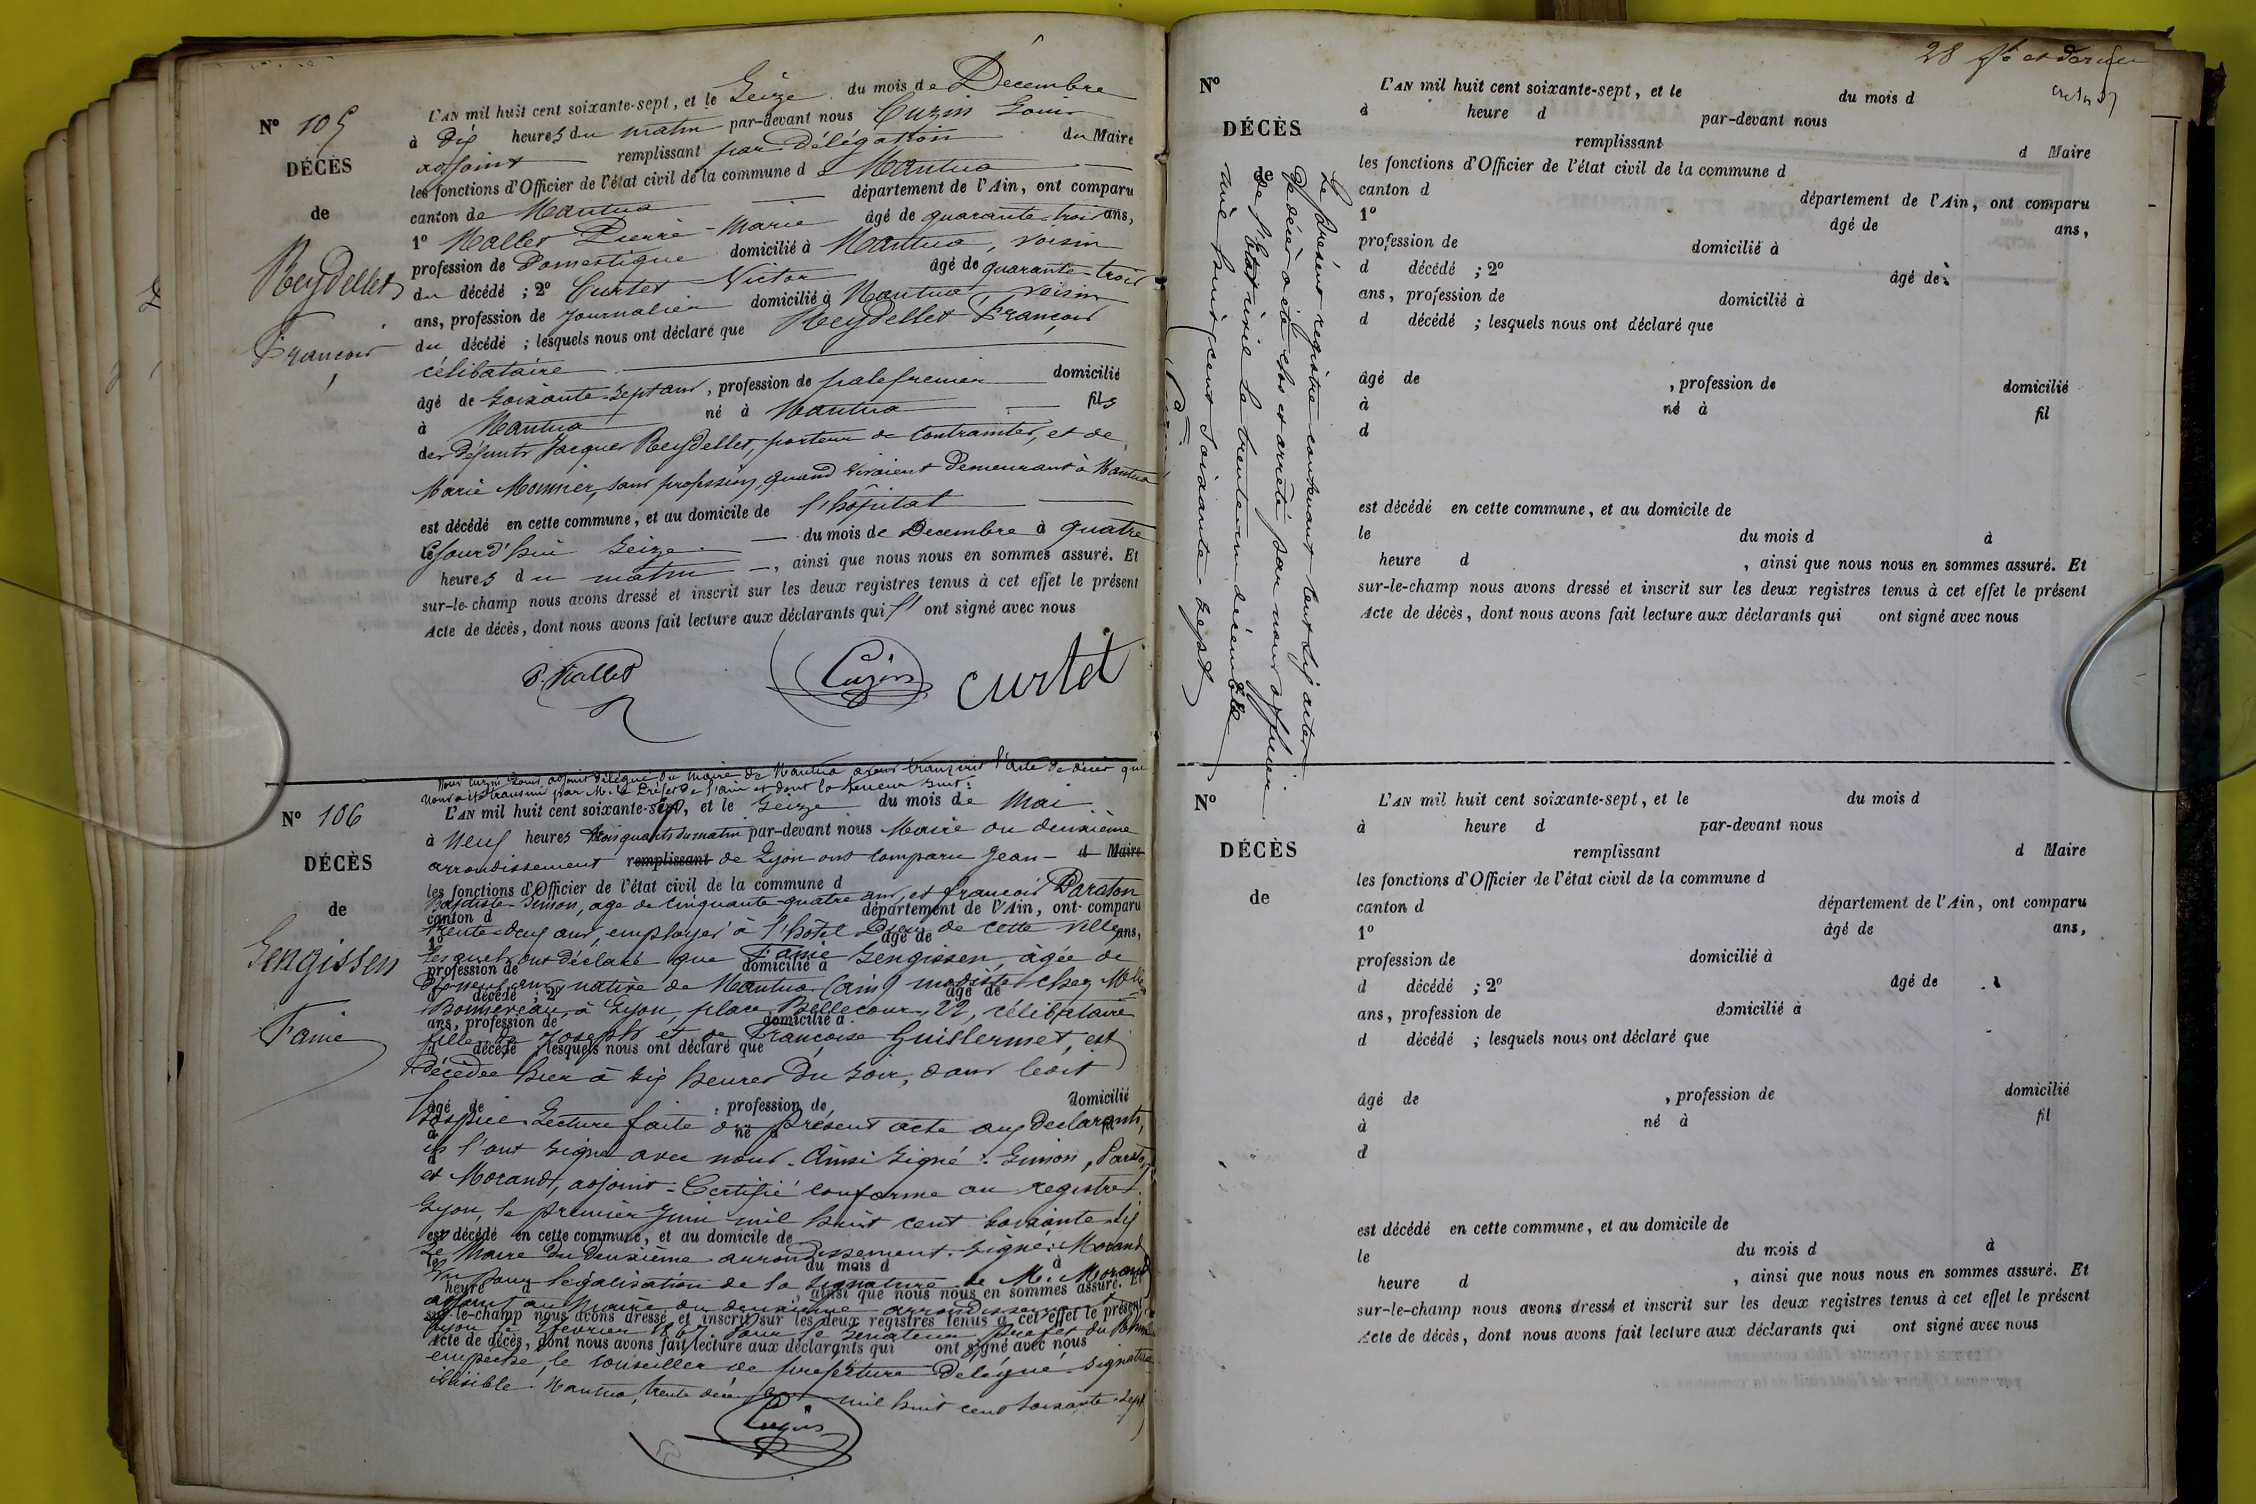 N° 105
DÉCÈS
de
Reydellet
François
L'AN mil huit cent soixante-sept, et le Seize du mois de Décembre
à dix heures du matin par-devant nous Cuzin Louis
adjoint remplissant par délégation du Maire
les fonctions d'Officier de l'état civil de la commune d Mantua
canton de Mantua département de l'Ain, ont comparu
1° Mallet Pierre-Marie âgé de quarante-trois ans,
profession de Domestique domicilié à Mantua, voisin
du décédé ; 2° Curtet Victor âgé de quarante-trois
ans, profession de Journalier domicilié à Mantua, voisin
du décédé ; lesquels nous ont déclaré que Reydellet François
célibataire
âgé de Soixante-Sept ans, profession de palefrenier domicilié
à Mantua né à Mantua fils
des défunts Jacques Reydellet, porteur de Contraintes, et de
Marie Monnier, sans profession, quand vivaient demeurant à Mantua
est décédé en cette commune, et au domicile de l'hôpital
le jourd'hui Seize du mois de Décembre à quatre
heures du matin, ainsi que nous nous en sommes assuré. Et
sur-le-champ nous avons dressé et inscrit sur les deux registres tenus à cet effet le présent
Acte de décès, dont nous avons fait lecture aux déclarants qui l' ont signé avec nous
P. Mallet Cuzin Curtet
N° 106
DÉCÈS
de
Gengissen
Fanie
Nous Cuzin Louis, adjoint délégué du Maire de Mantua avons transcrit l'acte de décès que
nous a été transmis par M. le Préfet de l'ain et dont la teneur suit :
L'AN mil huit cent soixante-six, et le Seize du mois de Mai
à neuf heures trois quarts du matin par-devant nous Maire du deuxième
arrondissement remplissant de Lyon ont comparu Jean- d Maire
les fonctions d'Officier de l'état civil de la commune d
Baptiste Simon, âgé de cinquante-quatre ans, et françois Paraton
canton d département de l'Ain, ont comparu
trente-deux ans, employés à l'hôtel Dieu de cette ville
1° âgé de ans,
Lesquels ont déclaré que Fanie Gengissen, âgée de
profession de domicilié à
dix-neuf ans, native de Mantua (ain) modiste chez Mlle
d décédé ; 2° âgé de
Bonnereau, à Lyon, place Bellecour, 22, célibataire
ans, profession de domicilié à
fille de Joseph et de Françoise Guillermet, est
d décédé ; lesquels nous ont déclaré que
décédée hier à six heures du soir, dans ledit
âgé de , profession de domicilié
hospice. Lecture faite du présent acte aux déclarants,
à né à fil
ils l'ont signé avec nous. Ainsi signé : Simon, Paraton
d
et Morand, adjoint - Certifié conforme au registre
Lyon, le premier Juin mil huit cent soixante-six
est décédé en cette commune, et au domicile de
Le Maire du deuxième arrondissement. Signé : Morand
le du mois d à
Vu pour légalisation de la signature de M. Morand
heure d , ainsi que nous nous en sommes assuré. Et
adjoint au Maire du deuxième arrondissement
sur-le-champ nous avons dressé et inscrit sur les deux registres tenus à cet effet le présent
Lyon, le février Pour le Sénateur préfet du Rhône
Acte de décès, dont nous avons fait lecture aux déclarants qui ont signé avec nous
empêché, le conseiller de préfecture délégué, signature
illisible. Mantua, trente décembre mil huit cent soixante-sept
Cuzin
28 et dernier
N°
DÉCÈS
de
Le présent registre contenant cent six actes
de décès a été clos et arrêté par nous officier
de l'état civil le trente un décembre
mil huit cent soixante-sept
L'AN mil huit cent soixante-sept, et le du mois d
à heure d par-devant nous
remplissant d Maire
les fonctions d'Officier de l'état civil de la commune d
canton d département de l'Ain, ont comparu
1° âgé de ans,
profession de domicilié à
d décédé ; 2° âgé de
ans, profession de domicilié à
d décédé ; lesquels nous ont déclaré que
âgé de , profession de domicilié
à né à fil
d
est décédé en cette commune, et au domicile de
le du mois d à
heure d , ainsi que nous nous en sommes assuré. Et
sur-le-champ nous avons dressé et inscrit sur les deux registres tenus à cet effet le présent
Acte de décès, dont nous avons fait lecture aux déclarants qui ont signé avec nous
N°
DÉCÈS
de
L'AN mil huit cent soixante-sept, et le du mois d
à heure d par-devant nous
remplissant d Maire
les fonctions d'Officier de l'état civil de la commune d
canton d département de l'Ain, ont comparu
1° âgé de ans,
profession de domicilié à
d décédé ; 2° âgé de
ans, profession de domicilié à
d décédé ; lesquels nous ont déclaré que
âgé de , profession de domicilié
à né à fil
d
est décédé en cette commune, et au domicile de
le du mois d à
heure d , ainsi que nous nous en sommes assuré. Et
sur-le-champ nous avons dressé et inscrit sur les deux registres tenus à cet effet le présent
Acte de décès, dont nous avons fait lecture aux déclarants qui ont signé avec nous